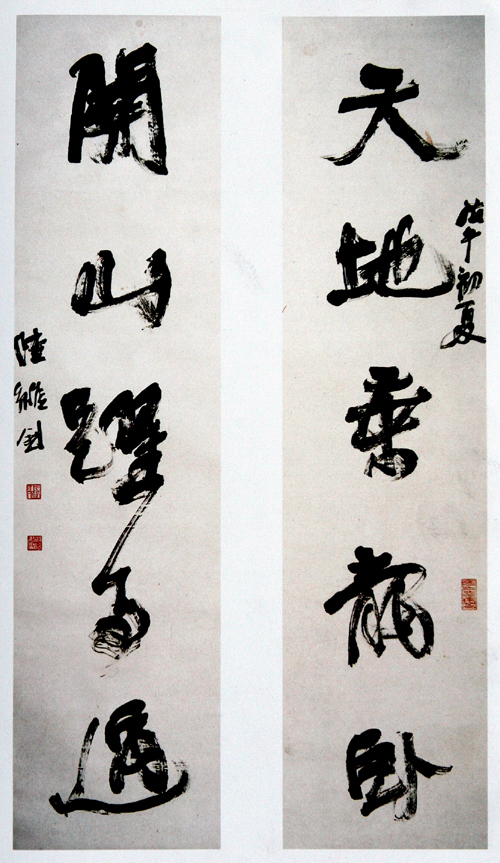 戊午初夏
天地乘龍卧
關山躍馬過
陸維釗